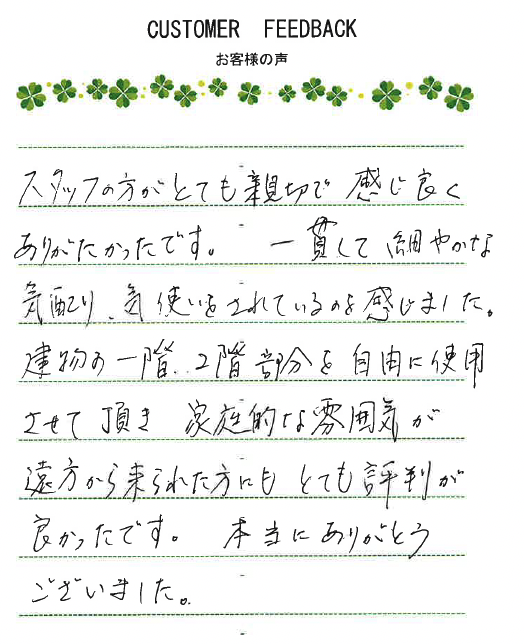 CUSTOMER FEEDBACK
お客様の声
スタッフの方がとても親切で 感じ良く
ありがたかったです。 一貫して 細やかな
気配り、気使いをされているのを感じました。
建物の一階、2階部分を自由に使用
させて頂き 家庭的な雰囲気が
遠方から来られた方にも とても評判が
良かったです。 本当にありがとう
ございました。